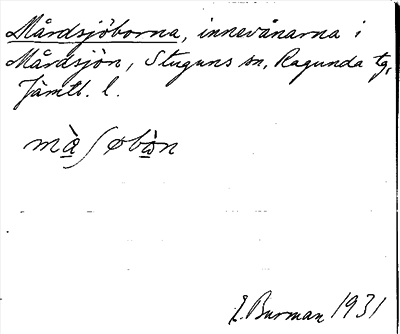 Mårdsjöborna, innevånarna i
Mårdsjön, Stuguns sn, Ragunda tg,
Jämtl. l.
mà̱ʃøbὼ̱n
E. Burman 1931